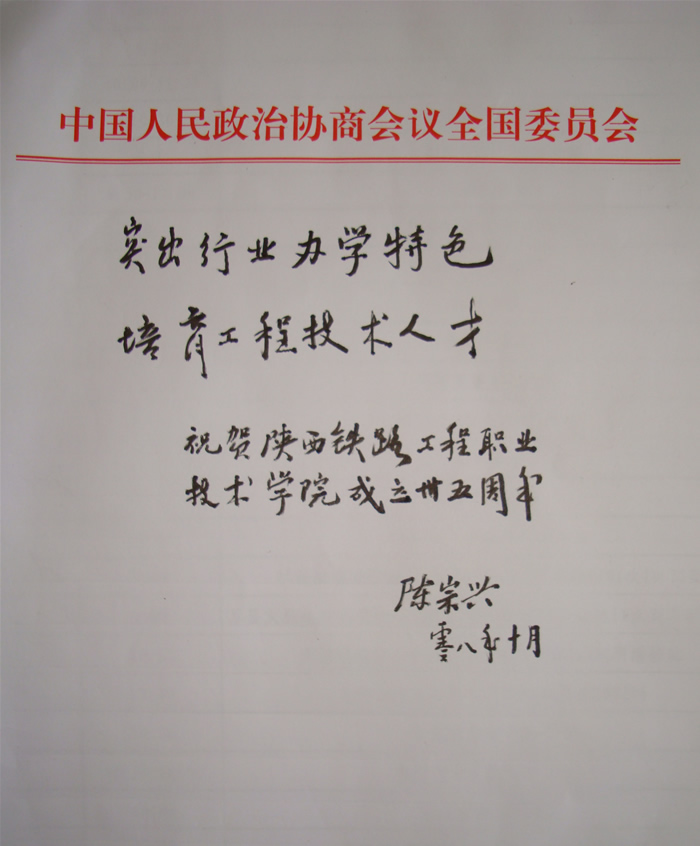 中国人民政治协商会议全国委员会
突出行业办学特色
培育工程技术人才
祝贺陕西铁路工程职业
技术学院成立卅五周年
陈宗兴
零八年十月